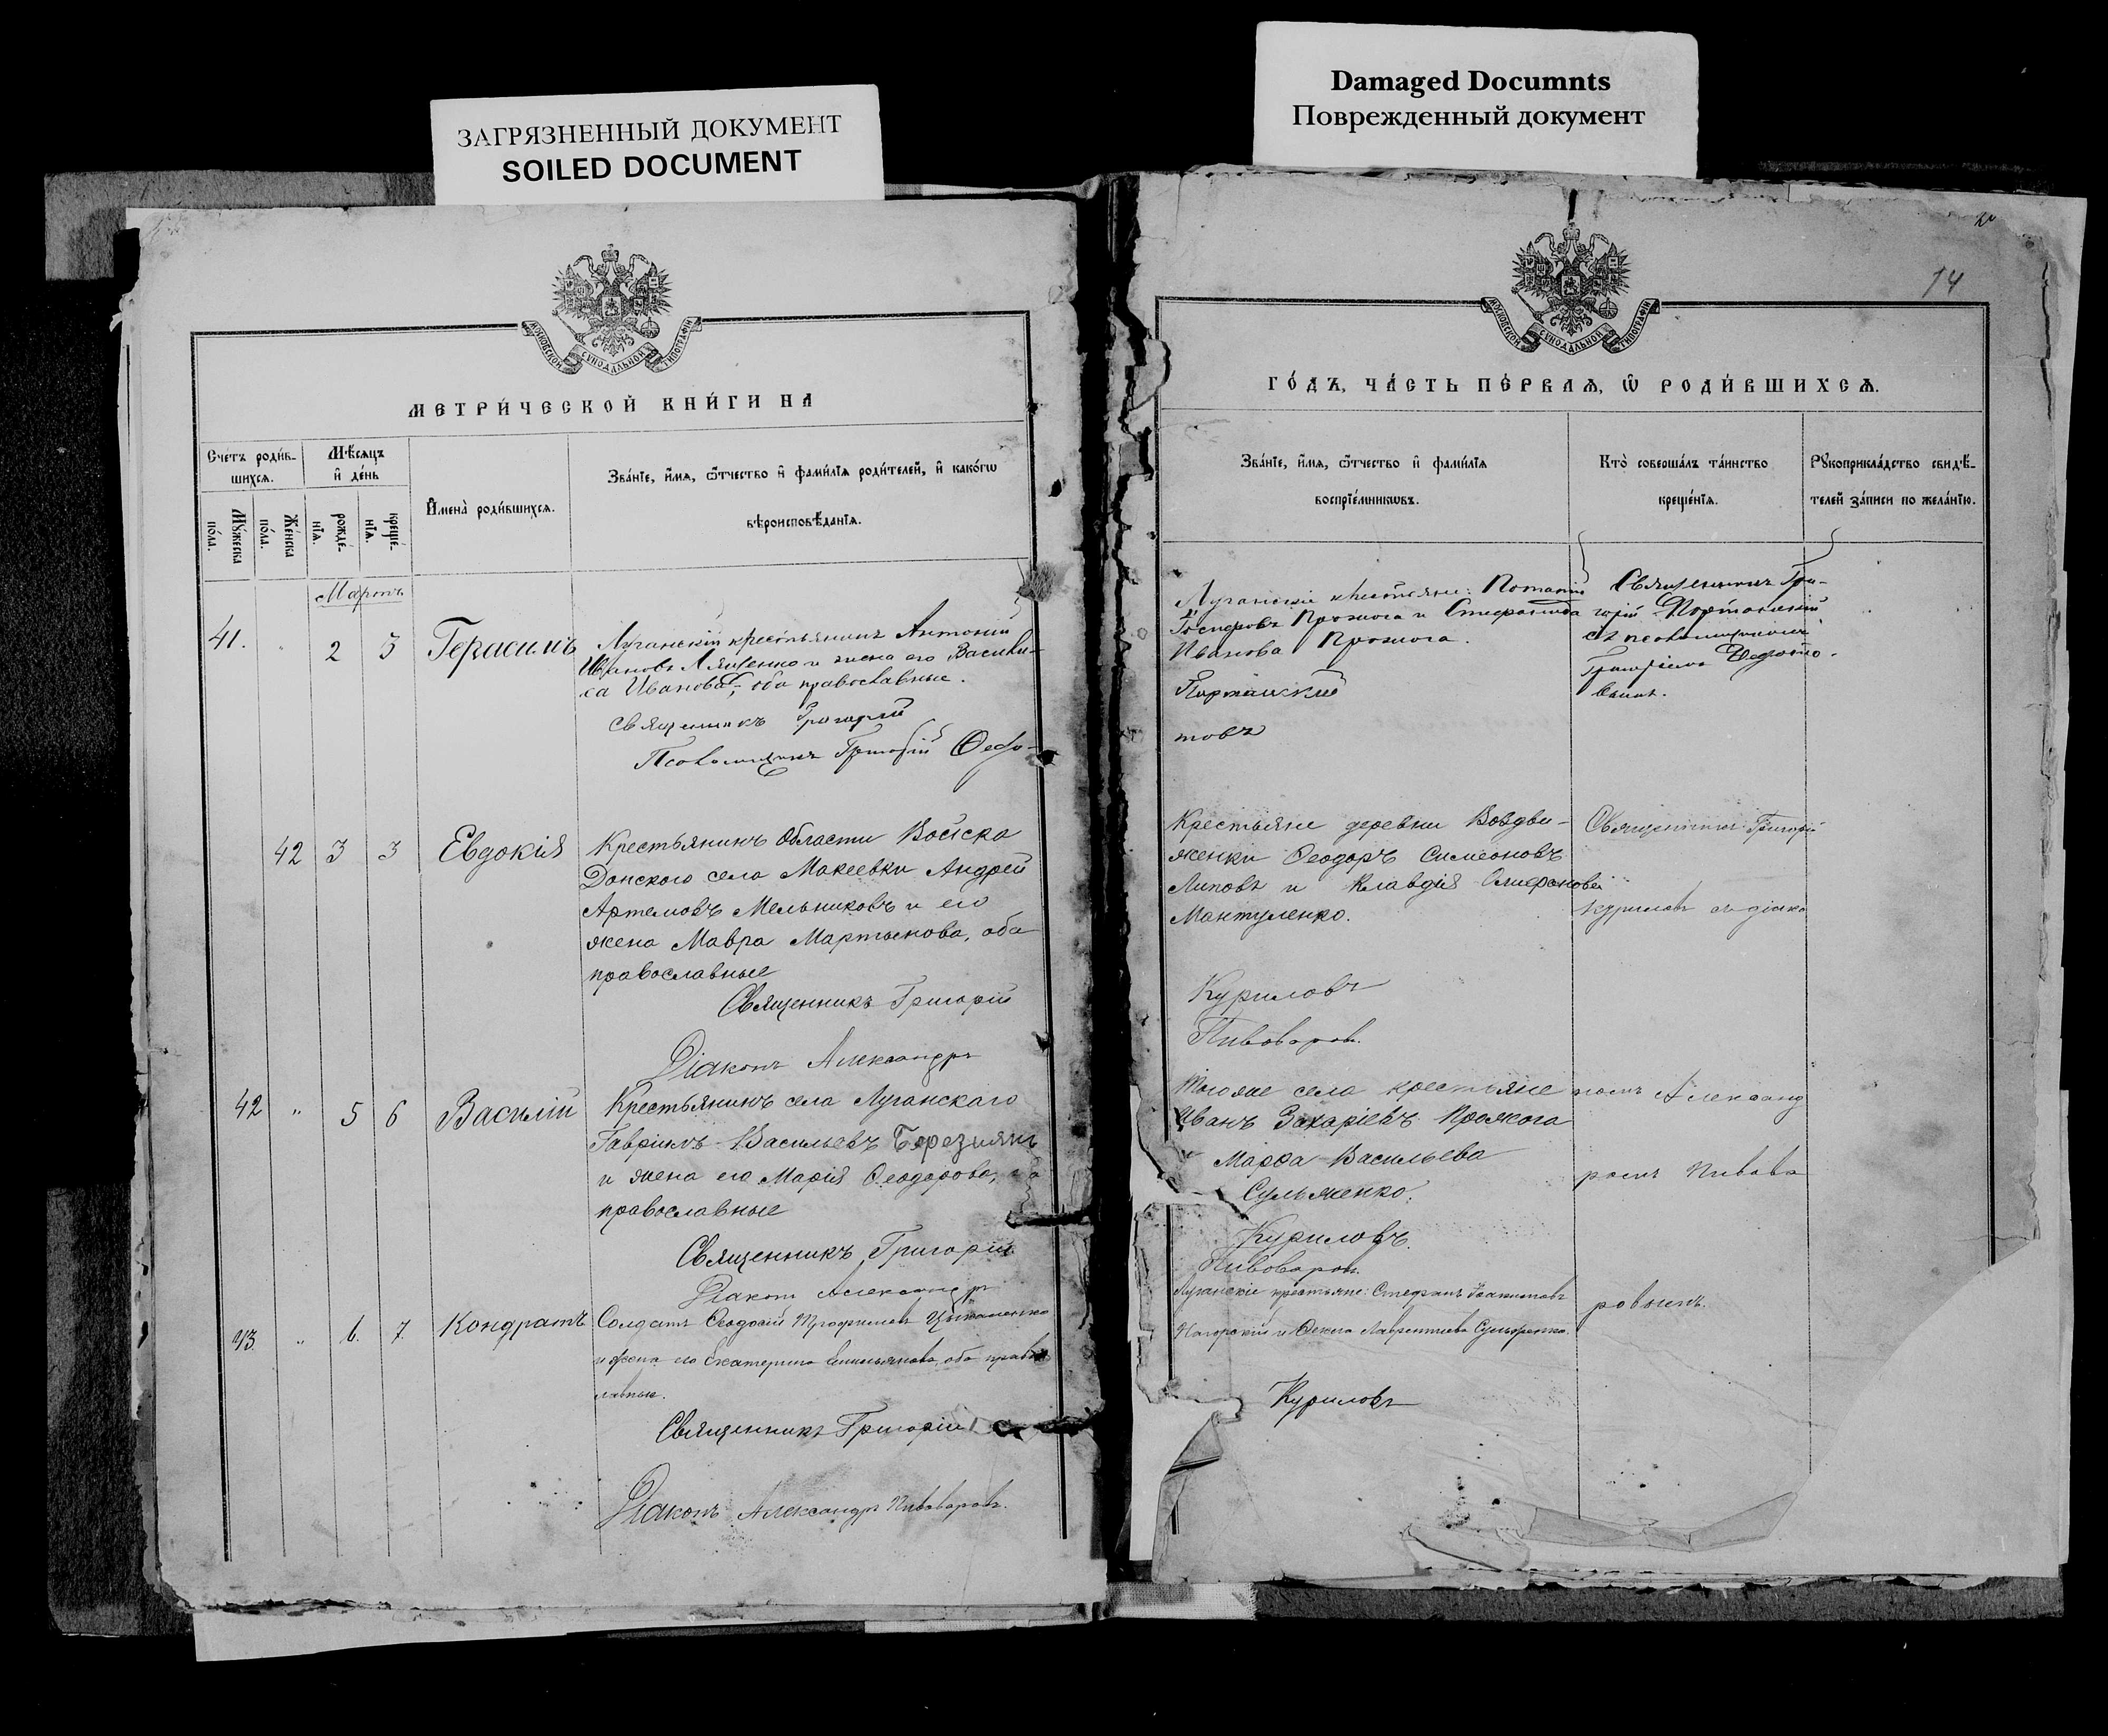 ЗАГРЯЗНЕННЫЙ ДОКУМЕНТ
SOILED DOCUMENT
Damaged Documnts
Поврежденный документ
МОСКОВСКОЙ СѴНОДАЛЬНОЙ ТИПОГРАФІИ
МЕТРИ́ЧЕСКОЙ КНИ́ГИ НА
Счетъ роди́в-
шихсѧ.
Мѣ́сѧцъ
и҆ де́нь
Му́жеска
по́ла.
Же́нска
по́ла.
рожде́-
нїѧ.
креще́-
нїѧ.
И҆мена̀ роди́вшихсѧ.
Зва́нїе, и҆́мѧ, ѻ҆́тчество и҆ фами́лїѧ роди́телей, и҆ како́гѡ
вѣроисповѣ́данїѧ.
Мартъ
41. 2 3 Герасимъ
Луганскій крестьянинъ Антоній
Ивановъ Ляшенко и жена его Васили-
са Иванова, оба православные.
Священникъ Григорій
Псаломщикъ Григорій Ѳедо-
42 3 3 Евдокія
Крестьянинъ Области Войска
Донского села Макеевки Андрей
Артемовъ Мельниковъ и его
жена Мавра Мартынова, оба
православные
Священникъ Григорій
Діаконъ Александръ
42 " 5 6 Василій
Крестьянинъ села Луганскаго
Гавріилъ Васильевъ
и жена его Марія Ѳеодорова,
православные
Священникъ Григорій
Діаконъ Александръ
43 " 6. 7. Кондратъ
Солдатъ Ѳеодосій Трофимовъ
и жена его Екатерина Емильянова, оба правос
лавные.
Священникъ Григорій
Діаконъ Александръ Пивоваровъ.
14
МОСКОВСКОЙ СѴНОДАЛЬНОЙ ТИПОГРАФІИ
ГО́ДЪ, ЧА́СТЬ ПЕ́РВАѦ, Ѡ҆ РОДИ́ВШИХСѦ.
Зва́нїе, и҆́мѧ, ѻ҆́тчество и҆ фами́лїѧ
воспрїе́мникѡвъ.
Кто̀ соверша́лъ та́инство
креще́нїѧ.
Рꙋкоприкла́дство свидѣ́-
телей за́писи по жела́нїю.
Луганскіе крестьяне: Потапій
Прожога и Стефанида
Иванова Прожога.
Портанскій
товъ
Священникъ Гри-
горій Портанскій
съ псаломщикомъ
Григоріемъ Ѳедото-
вымъ.
Крестьяне деревни Воздви-
женки Ѳеодоръ Симеоновъ
Липовъ и Клавдія
Мантуленко.
Куриловъ
Пивоваровъ.
Священникъ Григорій
Куриловъ съ діако
Того же села крестьяне
Иванъ Захаріевъ Прожога
Марѳа Васильева
Сульженко.
Куриловъ.
Пивоваровъ.
номъ Александ
ромъ Пивова
Луганскіе крестьяне: Стефанъ Іоакимовъ
Нагорскій и Ѳекла Лаврентиева
ровымъ.
Куриловъ